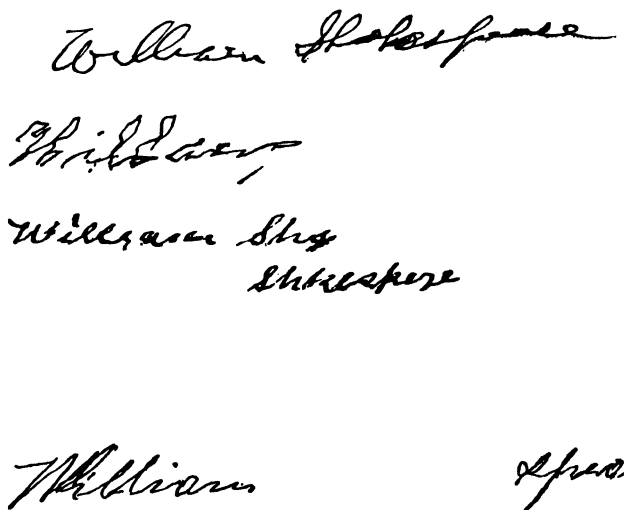 William Shakespeare
William
William Shg
Shkespere
William